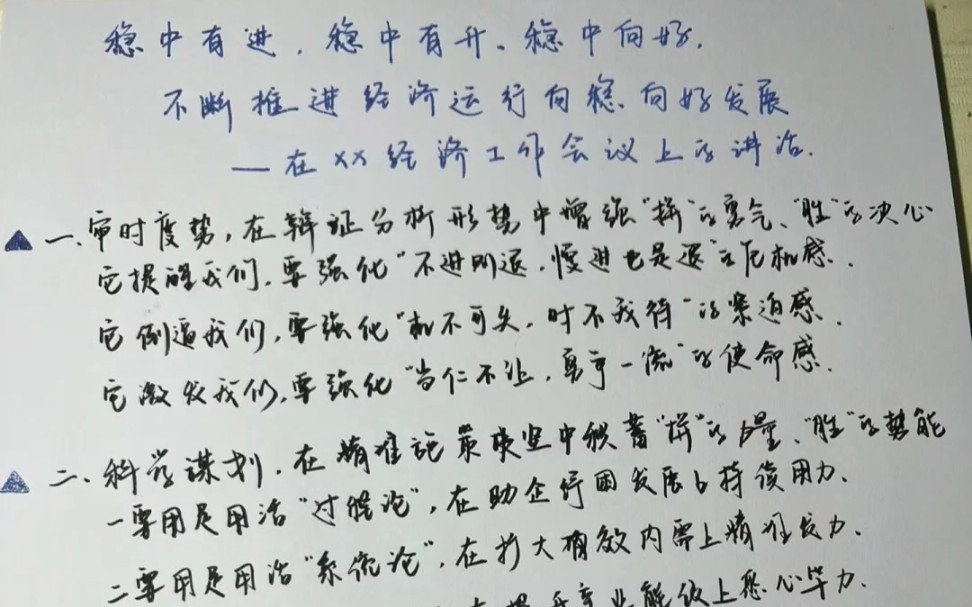 稳中有进、稳中有升、稳中向好,
不断推进经济运行向稳向好发展
—在XX经济工作会议上的讲话.
一、审时度势,在辩证分析形势中增强"拼"的勇气、"胜"的决心
它提醒我们,要强化"不进则退,慢进也是退"的危机感.
它倒逼我们,要强化"机不可失,时不我待"的紧迫感.
它激发我们,要强化"当仁不让,勇争一流"的使命感.
二、科学谋划,在精准施策攻坚中积蓄"拼"的力量、"胜"的势能
一要用足用活"过程论",在助企纾困发展上持续用力.
二要用足用活"系统论",在扩大有效内需上精准发力.
在提升产业能级上悉心毕力.